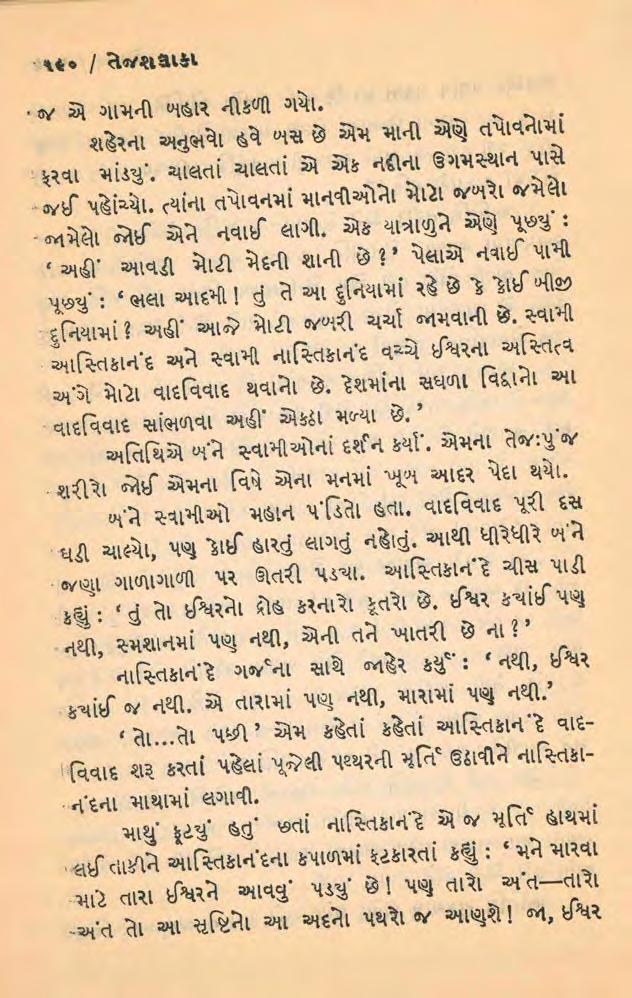 ૧૯૦ / તેજશલાકા
જ એ ગામની બહાર નીકળી ગયો.
શહેરના અનુભવો હવે બસ છે એમ માની એણે તપોવનોમાં
ફરવા માંડયું. ચાલતાં ચાલતાં એ એક નદીના ઉગમસ્થાન પાસે
જઈ પહોંચ્યો. ત્યાંના તપોવનમાં માનવીઓનો મોટો જબરો જમેલો
જામેલો જોઈ એને નવાઈ લાગી. એક યાત્રાળુને એણે પૂછયું :
‘ અહીં આવડી મોટી મેદની શાની છે ? ’ પેલાએ નવાઈ પામી
પૂછયું : ‘ ભલા આદમી ! તું તે આ દુનિયામાં રહે છે કે કોઈ બીજી
દુનિયામાં ? અહીં આજે મોટી જબરી ચર્ચા જામવાની છે. સ્વામી
આસ્તિકાનંદ અને સ્વામી નાસ્તિકાનંદ વચ્ચે ઈશ્વરના અસ્તિત્વ
અંગે મોટો વાદવિવાદ થવાનો છે. દેશમાંના સઘળા વિદ્વાનો આ
વાદવિવાદ સાંભળવા અહીં એકઠા મળ્યા છે. ’
અતિથિએ બંને સ્વામીઓનાં દર્શન કર્યાં. એમના તેજઃપુંજ
શરીરો જોઈ એમના વિષે એના મનમાં ખૂબ આદર પેદા થયો.
બંને સ્વામીઓ મહાન પંડિતો હતા. વાદવિવાદ પૂરી દસ
ઘડી ચાલ્યો, પણ કોઈ હારતું લાગતું નહોતું. આથી ધીરેધીરે બંને
જણા ગાળાગાળી પર ઊતરી પડયા. આસ્તિકાનંદે ચીસ પાડી
કહ્યું : ‘ તું તો ઈશ્વરનો દ્રોહ કરનારો કૂતરો છે. ઈશ્વર કયાંઈ પણ
નથી, સ્મશાનમાં પણ નથી, એની તને ખાતરી છે ના ? ’
નાસ્તિકાનંદે ગર્જના સાથે જાહેર કર્યું : ‘ નથી, ઈશ્વર
કયાંઈ જ નથી. એ તારામાં પણ નથી, મારામાં પણ નથી.’
‘ તો...તો પછી ’ એમ કહેતાં કહેતાં આસ્તિકાનંદે વાદ-
વિવાદ શરૂ કરતાં પહેલાં પૂજેલી પથ્થરની મૂર્તિ ઉઠાવીને નાસ્તિકા-
નંદના માથામાં લગાવી.
માથું ફૂટયું હતું છતાં નાસ્તિકાનંદે એ જ મૂર્તિ હાથમાં
લઈ તાકીને આસ્તિકાનંદના કપાળમાં ફટકારતાં કહ્યું : ‘ મને મારવા
માટે તારા ઈશ્વરને આવવું પડયું છે ! પણ તારો અંત—તારો
અંત તો આ સૃષ્ટિનો આ અદનો પથરો જ આણશે ! જા, ઈશ્વર